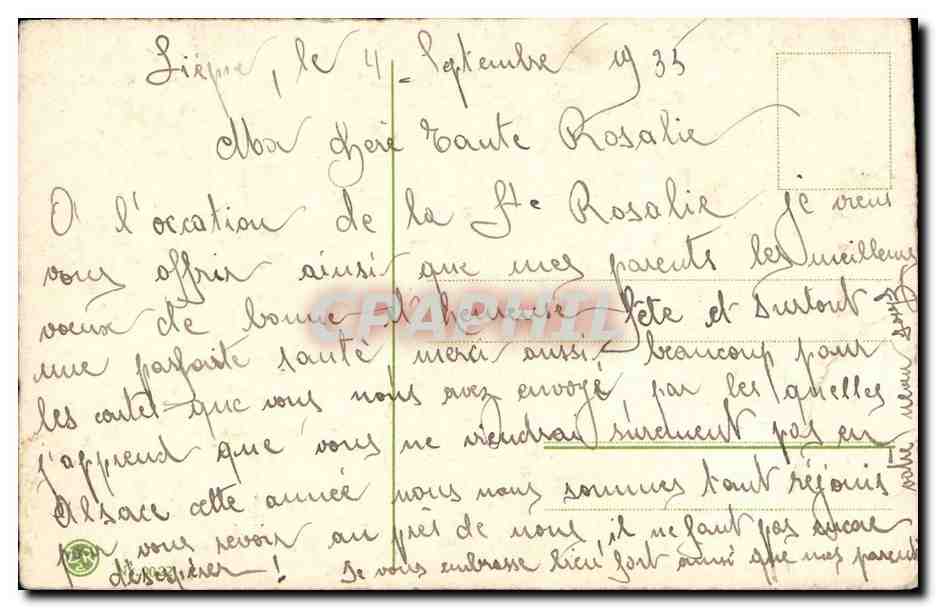 Lièpvre, le 4 Septembre 1935
Ma chère Tante Rosalie
A l'occation de la Ste Rosalie je viens
vous offrir ainsi que mes parents les meilleurs
vœux de bonne et heureuse fête et surtout
une parfaite santé merci aussi beaucoup pour
les cartes que vous nous avez envoyé, par les quelles
j'apprend que vous ne viendrau surement pas en
Alsace cette année nous nous sommes tant réjouis
pour vous revoir au près de nous, il ne faut pas encore
désespérer! Je vous embrasse bien fort ainsi que mes parents
votre neveu
CPAPHIL